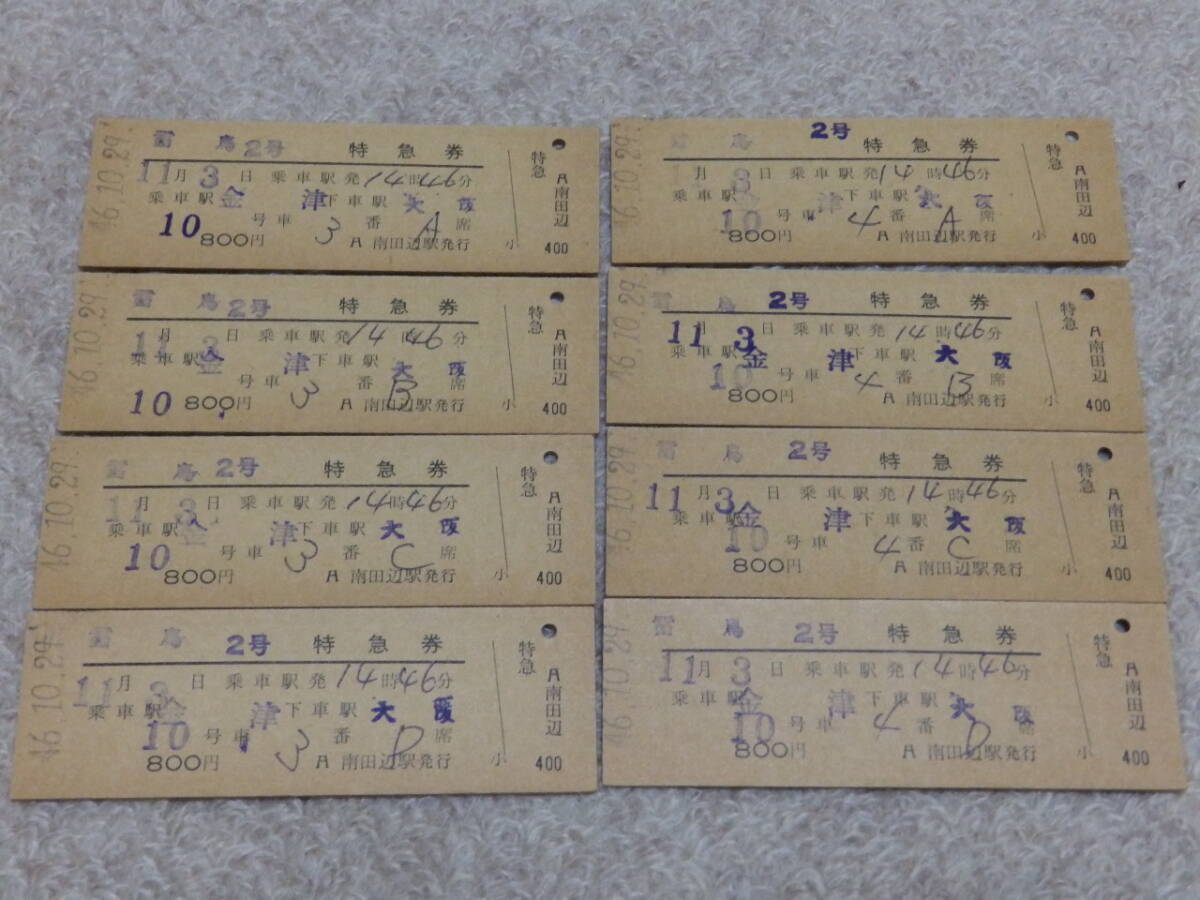 46.10.29.
雷 鳥 2号 特 急 券
11月 3日 乗車駅発 14時49分
乗車駅 金 津 下車駅 大 阪
10号車 3番 A席
800円 A 南田辺駅発行 小
特急
A 南田辺
400
46.10.29.
2号 特 急 券
11月 3日 乗車駅発 14時49分
津 下車駅 大 阪
10号車 4番 A席
800円 A 南田辺駅発行 小
特急
A 南田辺
400
46.10.29.
雷 鳥 2号 特 急 券
11月 3日 乗車駅発 14時49分
乗車駅 金 津 下車駅 大 阪
10号車 3番 B席
800円 A 南田辺駅発行 小
特急
A 南田辺
400
46.10.29.
雷 鳥 2号 特 急 券
11月 3日 乗車駅発 14時49分
乗車駅 金 津 下車駅 大 阪
10号車 4番 B席
800円 A 南田辺駅発行 小
特急
A 南田辺
400
46.10.29.
雷 鳥 2号 特 急 券
11月 3日 乗車駅発 14時49分
乗車駅 金 津 下車駅 大 阪
10号車 3番 C席
800円 A 南田辺駅発行 小
特急
A 南田辺
400
46.10.29.
雷 鳥 2号 特 急 券
11月 3日 乗車駅発 14時49分
乗車駅 金 津 下車駅 大 阪
10号車 4番 C席
800円 A 南田辺駅発行 小
特急
A 南田辺
400
46.10.29
雷 鳥 2号 特 急 券
11月 3日 乗車駅発 14時49分
乗車駅 金 津 下車駅 大 阪
10号車 3番 D席
800円 A 南田辺駅発行 小
特急
A 南田辺
400
46.10.29
雷 鳥 2号 特 急 券
11月 3日 乗車駅発 14時49分
乗車駅 金 津 下車駅 大 阪
10号車 4番 D席
800円 A 南田辺駅発行 小
特急
A 南田辺
400